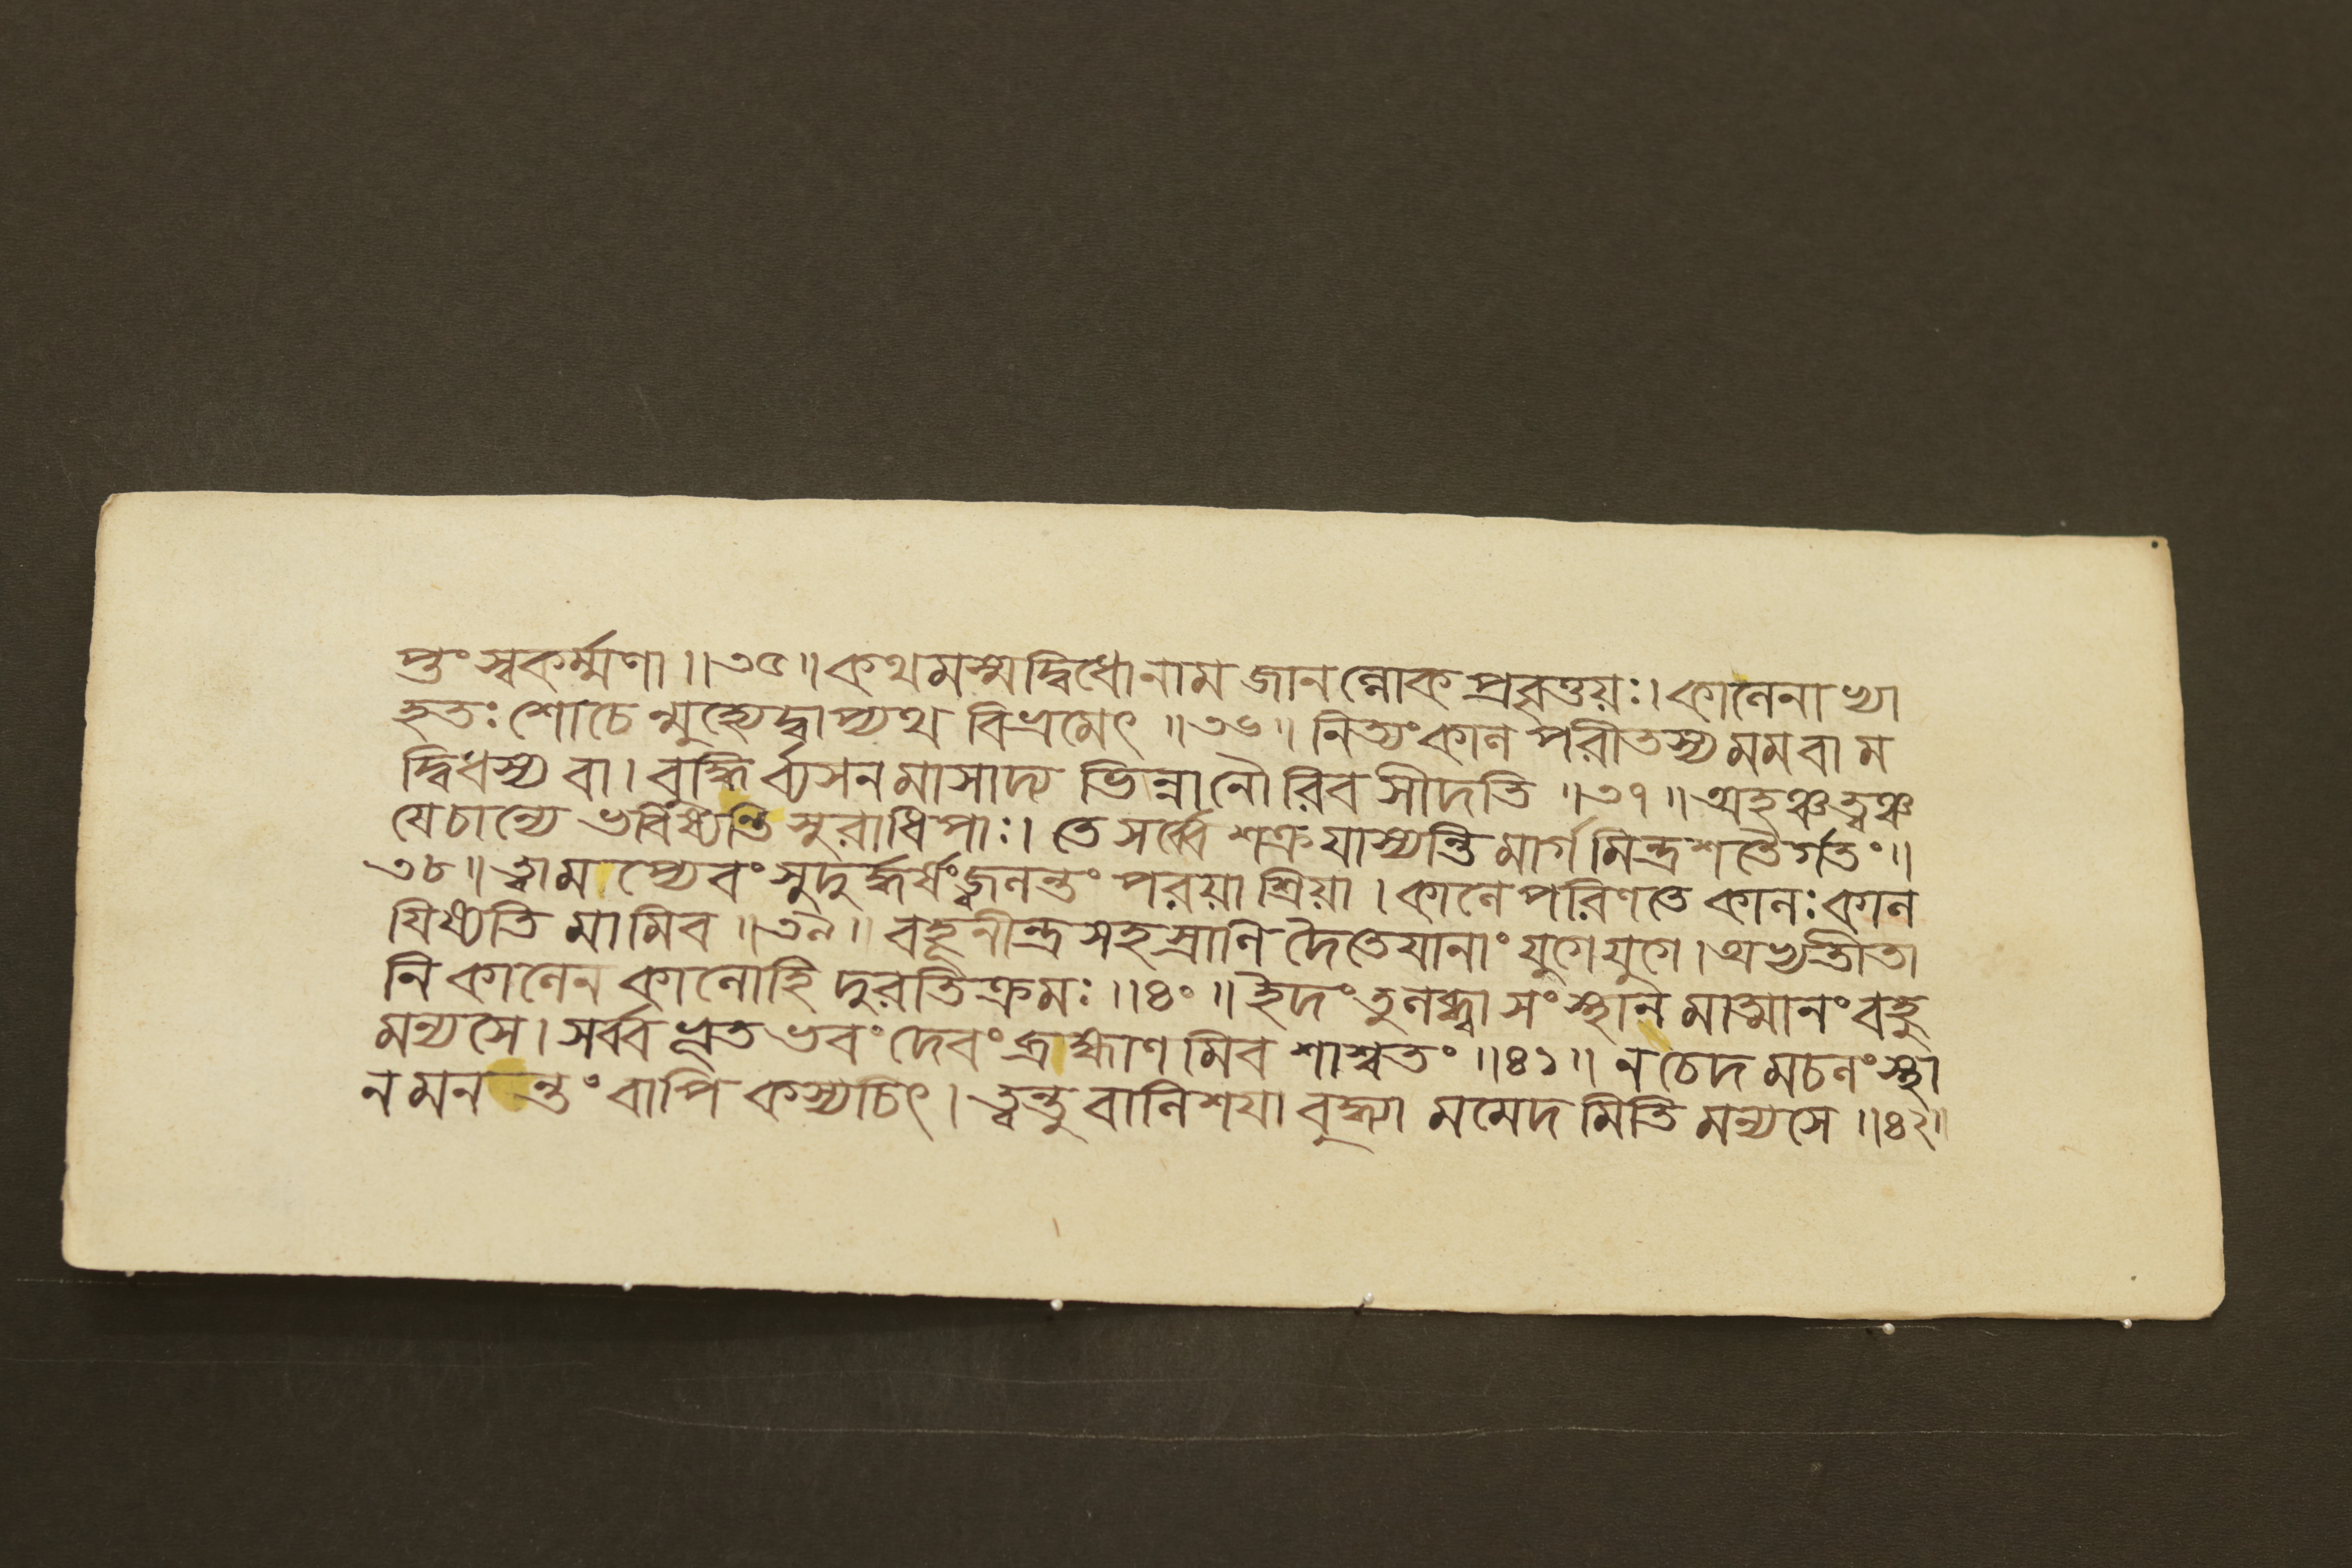 প্তুং স্বকর্ম্মণা ॥ ৩৫ ॥ কথমস্মদ্বিধোনাম জানল্লোক প্রবৃত্তয়ঃ। কালেনাখ্যা
হতঃ শোচেন্মুহ্যেদ্বাপ্যথ বিভ্রমেৎ ॥ ৩৬ ॥ নিত্যং কাল পরীতস্য মম বা ম
দ্বিধস্য বা। বুদ্ধির্ব্যসন মাসাদ্য ভিন্না নৌরিব সীদতি ॥ ৩৭ ॥ অহঞ্চ ত্বঞ্চ
যেচান্যে ভবিষ্যন্তি সুরাধিপাঃ। তে সর্ব্বে শক্র যাস্যন্তি মার্গমিন্দ্র শতৈর্গতং ॥
৩৮ ॥ ত্বামপ্যেবং সুদুর্দ্ধর্ষং জ্বলন্তং পরয়া শ্রিয়া। কালে পরিণতে কালঃ কাল
যিষ্যতি মামিব ॥ ৩৯ ॥ বহূনীন্দ্র সহস্রাণি দৈতেযানাং যুগে যুগে। অভ্যতীতা
নি কালেন কালোহি দুরতিক্রমঃ ॥ ৪০ ॥ ইদং তুলব্ধ্বা সংস্থান মাত্মানং বহু
মন্যসে। সর্ব্বভূত ভবং দেবং ব্রাহ্মাণ মিব শাশ্বতং ॥ ৪১ ॥ ন চেদ মচলং স্থা
ন মনন্তং বাপি কস্যচিৎ। ত্বন্তু বালিশযা বুদ্ধ্যা মমেদ মিতি মন্যসে ॥ ৪২ ॥